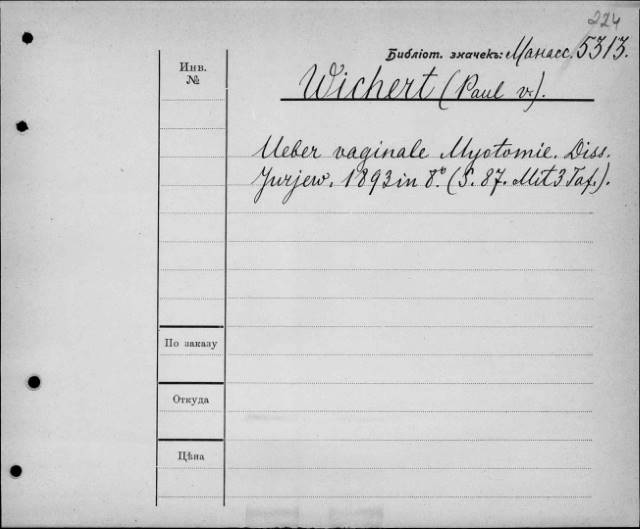 224
Библіот. значекъ: Манасс. 5313.
Инв.
№
Wichert (Paul v.).
Ueber vaginale Myotomie. Diss.
Jurjew. 1893 in 8°. (S. 87. Mit 3 Taf.).
По заказу
Откуда
Цѣна